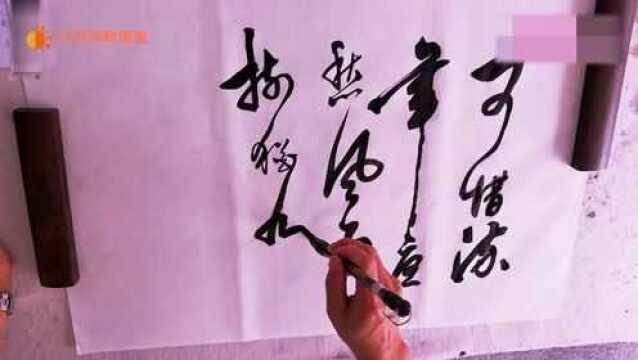 可惜流
年忧
愁风雨
树犹如